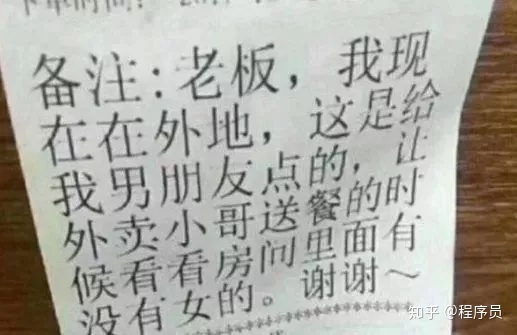 备注:老板,我现
在在外地,这是给
我男朋友点的,让
外卖小哥送餐的时
候看看房间里面有
没有女的。谢谢~
知乎 @程序员